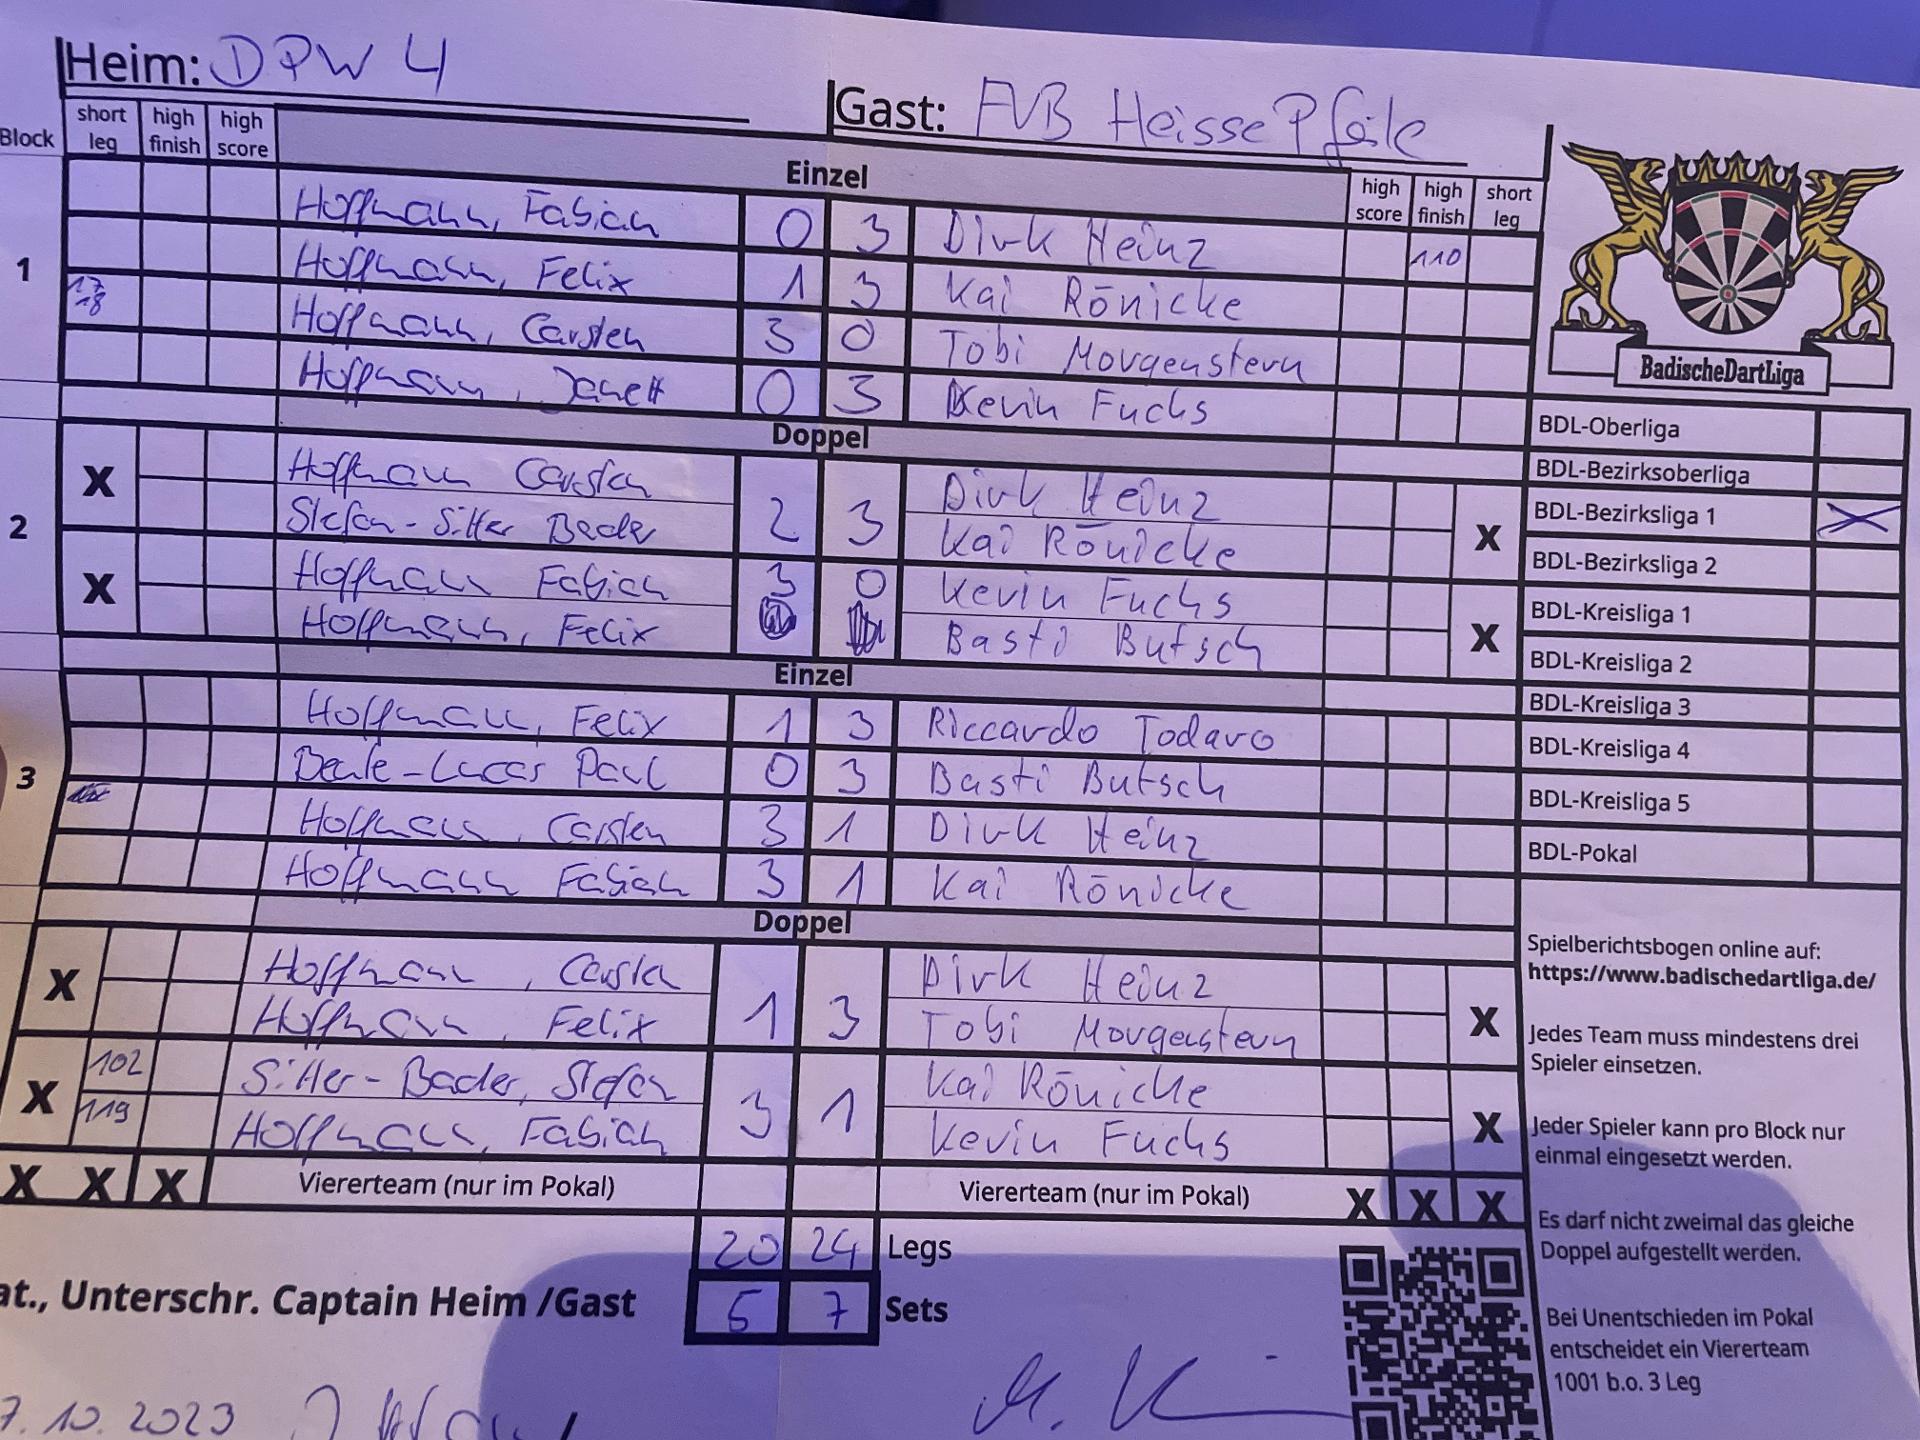 Heim: DPW 4
Gast: FVB Heisse Pfeile
Block short leg high finish high score
Einzel
high score high finish short leg
1
Hoffmann, Fabian 0 3 Dirk Heinz 110
Hoffmann, Felix 1 3 Kai Rönicke
17 18 Hoffmann, Carsten 3 0 Tobi Morgenstern
Hoffmann, Janett 0 3 Kevin Fuchs
Doppel
2
X Hoffmann Carsten 2 3 Dirk Heinz X
Stefan-Sitter Bader Kai Rönicke
X Hoffmann Fabian 3 0 Kevin Fuchs X
Hoffmann, Felix Basti Butsch
Einzel
3
Hoffmann, Felix 1 3 Riccardo Todaro
Beate-Lucas Paul 0 3 Basti Butsch
Hoffmann, Carsten 3 1 Dirk Heinz
Hoffmann Fabian 3 1 Kai Rönicke
Doppel
X Hoffmann, Carsten 1 3 Dirk Heinz X
Hoffmann, Felix Tobi Morgenstern
X 102 Sitter-Bader, Stefan 3 1 Kai Rönicke X
119 Hoffmann, Fabian Kevin Fuchs
X X X Viererteam (nur im Pokal) Viererteam (nur im Pokal) X X X
20 24 Legs
at., Unterschr. Captain Heim /Gast 5 7 Sets
7.10.2023
BadischeDartLiga
BDL-Oberliga
BDL-Bezirksoberliga
BDL-Bezirksliga 1 X
BDL-Bezirksliga 2
BDL-Kreisliga 1
BDL-Kreisliga 2
BDL-Kreisliga 3
BDL-Kreisliga 4
BDL-Kreisliga 5
BDL-Pokal
Spielberichtsbogen online auf:
https://www.badischedartliga.de/
Jedes Team muss mindestens drei
Spieler einsetzen.
Jeder Spieler kann pro Block nur
einmal eingesetzt werden.
Es darf nicht zweimal das gleiche
Doppel aufgestellt werden.
Bei Unentschieden im Pokal
entscheidet ein Viererteam
1001 b.o. 3 Leg